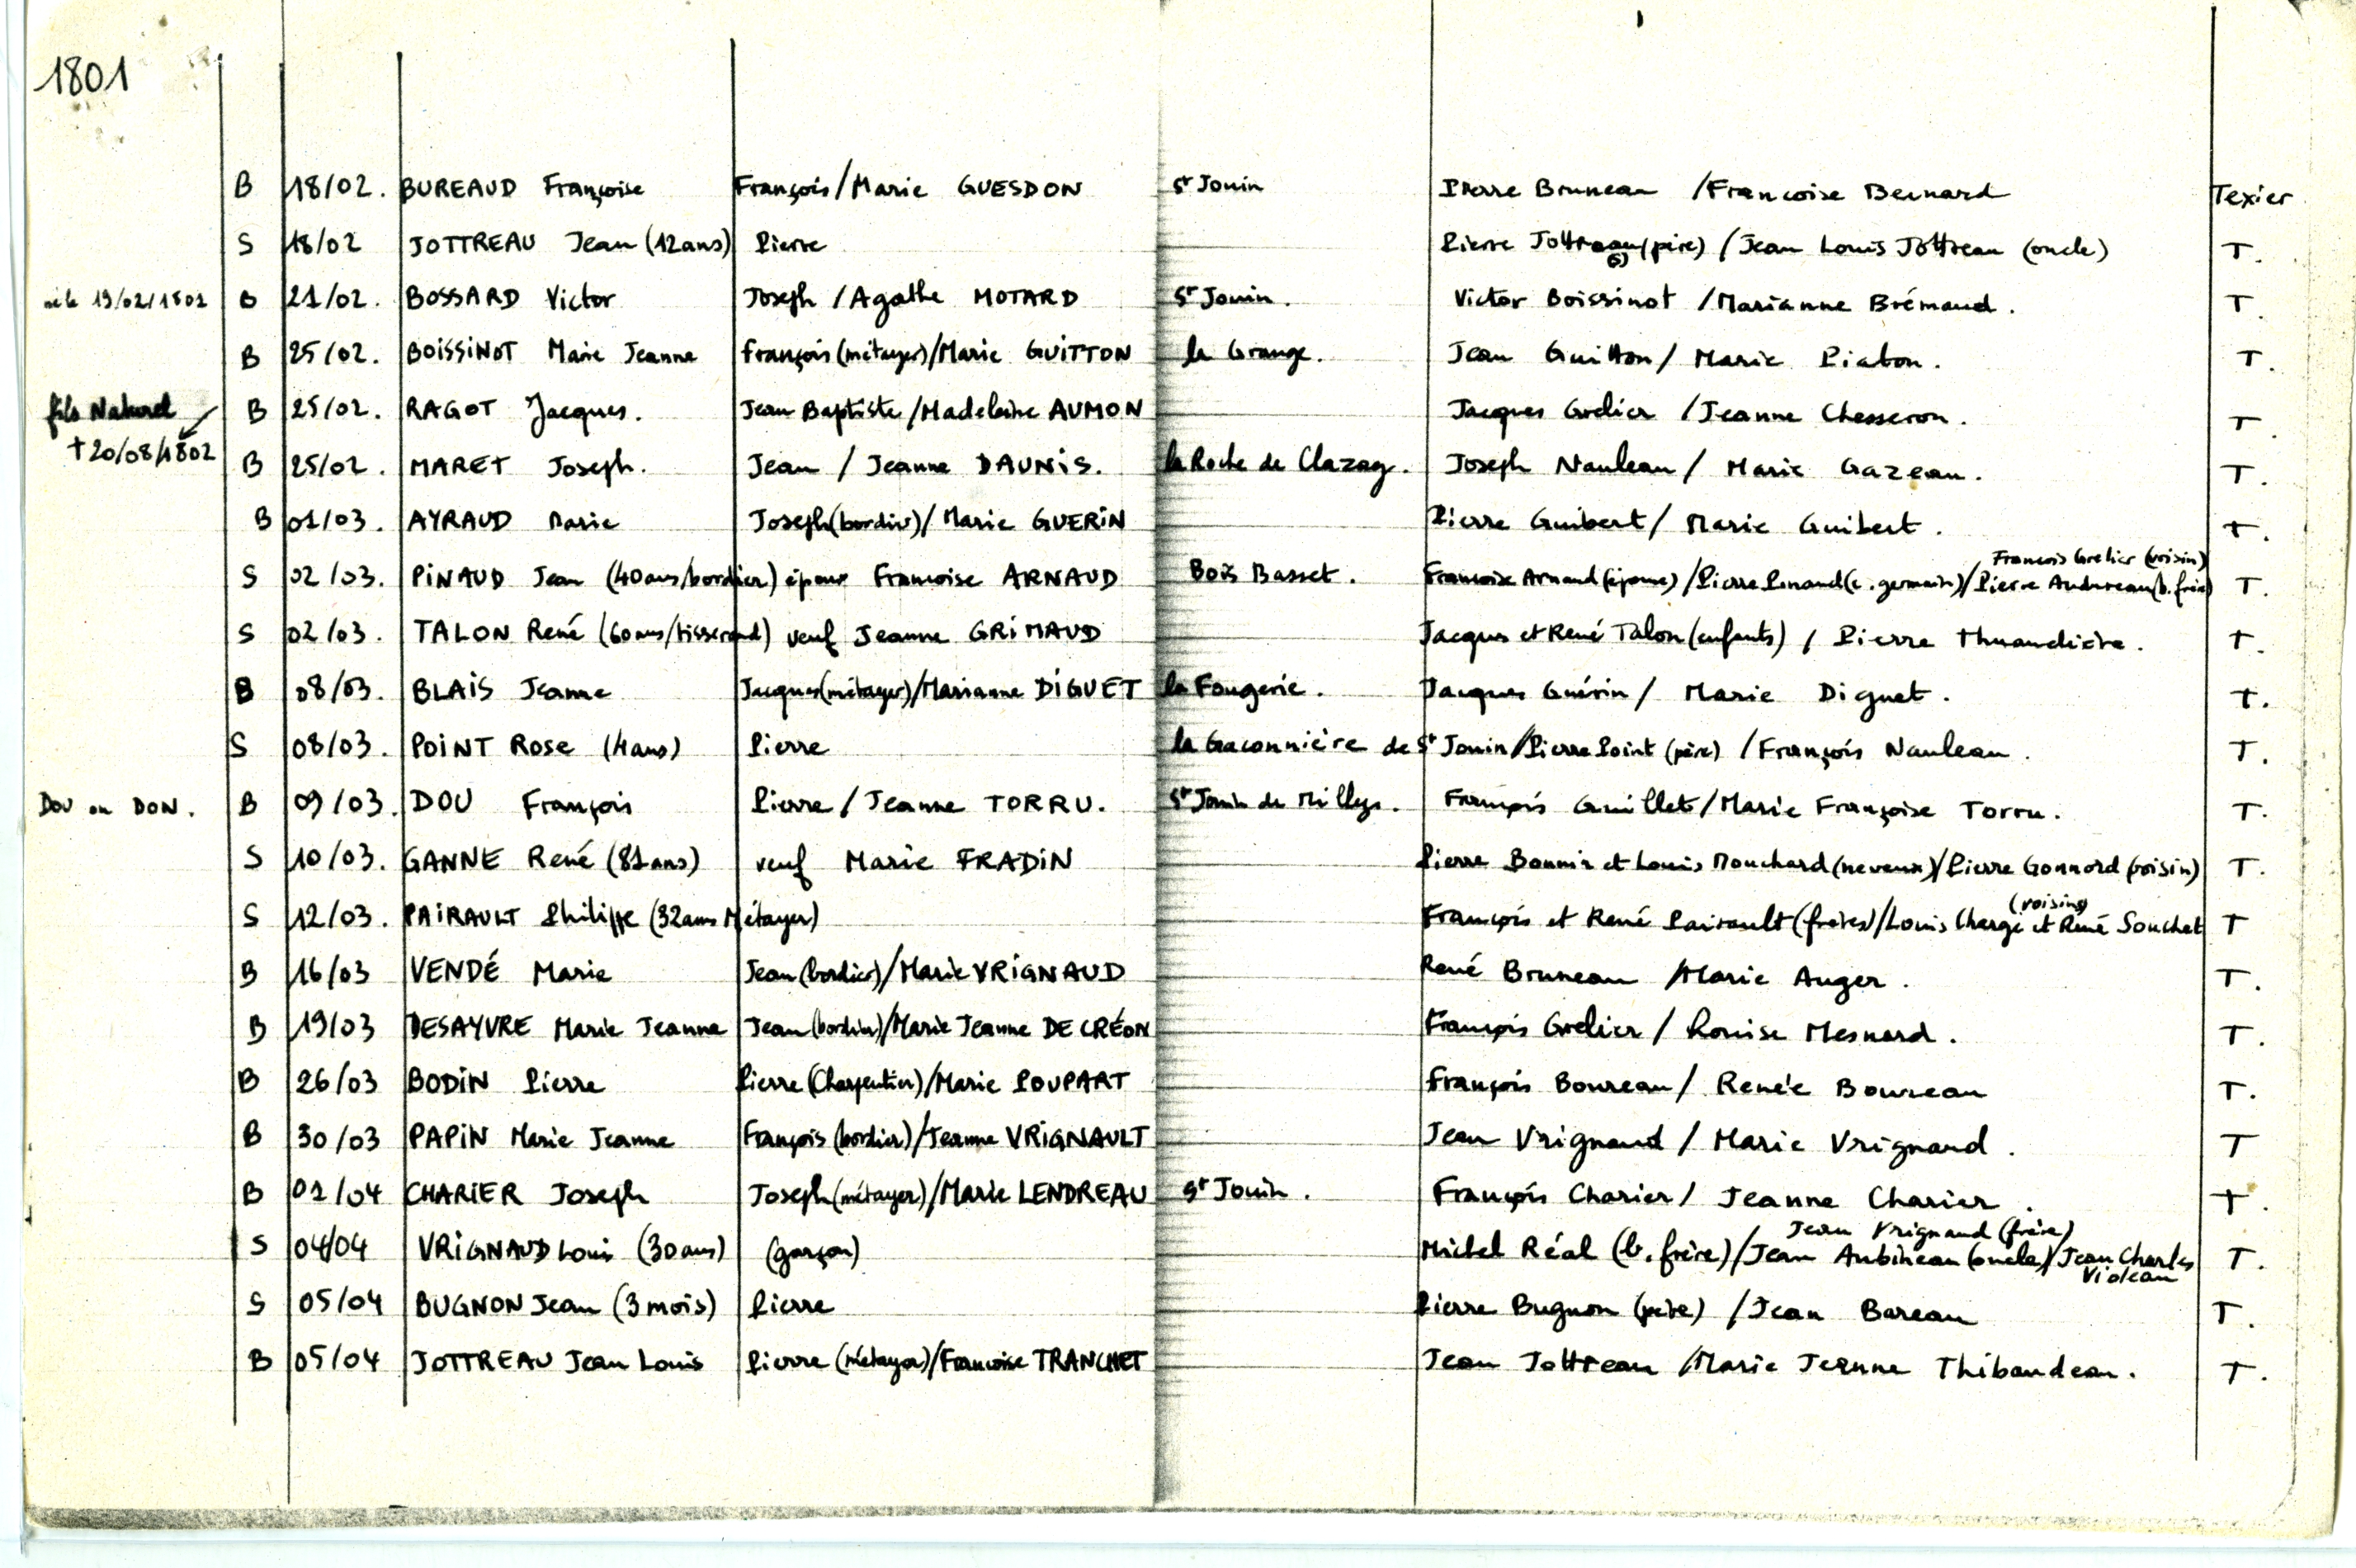 1801
B 18/02. BUREAUD Françoise François/Marie GUESDON St Jouin Pierre Bruneau /Francoise Bernard Texier
S 18/02 JOTTREAU Jean (12ans) Pierre Pierre Jottreau (père) / Jean Louis Jottreau (oncle) T.
né le 19/02/1801 B 21/02. BOSSARD Victor Joseph /Agathe MOTARD St Jouin. Victor Boissinot /Marianne Brémaud. T.
B 25/02. BOISSINOT Marie Jeanne François (métayer)/Marie GUITTON la Grange. Jean Guitton/ Marie Piaton. T.
fils Naturel B 25/02. RAGOT Jacques. Jean Baptiste /Madeleine AUMON Jacques Grelier /Jeanne Chesseron. T.
+ 20/08/1802 B 25/02. MARET Joseph. Jean / Jeanne DAUNIS. la Roche de Clazay. Joseph Nauleau / Marie Gazeau. T.
B 01/03. AYRAUD Marie Joseph (bordier)/ Marie GUERIN Pierre Guibert/ Marie Guibert. T.
François Grelier (voisin)
S 02/03. PINAUD Jean (40ans/bordier) époux Francoise ARNAUD Bois Basset. Francoise Arnaud (épouse) /Pierre Pinaud (c. germain)/ Pierre Audureau (b. frère) T.
S 02/03. TALON René (60ans/tisserand) veuf Jeanne GRIMAUD Jacques et René Talon (enfants) / Pierre Thuaudière. T.
B 08/03. BLAIS Jeanne Jacques (métayer)/Marianne DIGUET la Fougerie. Jacques Guérin/ Marie Diguet. T.
S 08/03. POINT Rose (4ans) Pierre la Gaconnière de St Jouin / Pierre Point (père) /François Nauleau. T.
DOU ou DON. B 09/03. DOU François Pierre / Jeanne TORRU. St Jouin de Milly. François Guillet /Marie Françoise Torru. T.
S 10/03. GANNE René (81ans) veuf Marie FRADIN Pierre Bonnin et Louis Mouchard (neveux)/ Pierre Gonnord (voisin) T.
(voisins)
S 12/03. PAIRAULT Philippe (32ans Métayer) François et René Pairault (frères)/Louis Chargé et René Souchet T
B 16/03 VENDÉ Marie Jean (bordier)/Marie VRIGNAUD René Bruneau /Marie Auger. T.
B 19/03 DESAYVRE Marie Jeanne Jean (bordier)/Marie Jeanne DECRÉON François Grelier / Louise Mesnard. T.
B 26/03 BODIN Pierre Pierre (Charpentier)/Marie POUPART François Boureau/ Renée Boureau T.
B 30/03 PAPIN Marie Jeanne François (bordier)/Jeanne VRIGNAULT Jean Vrignaud / Marie Vrignaud. T
B 01/04 CHARIER Joseph Joseph (métayer)/Marie LENDREAU St Jouin. François Charier/ Jeanne Charier. T.
Jean Vrignaud (frère)
S 04/04 VRIGNAUD Louis (30ans) (garçon) Michel Réal (b. frère) /Jean Aubineau (oncle)/ Jean Charles T.
Violeau
S 05/04 BUGNON Jean (3 mois) Pierre Pierre Bugnon (père) /Jean Bareau T.
B 05/04 JOTTREAU Jean Louis Pierre (métayer)/Francoise TRANCHET Jean Jottreau /Marie Jeanne Thibaudeau. T.